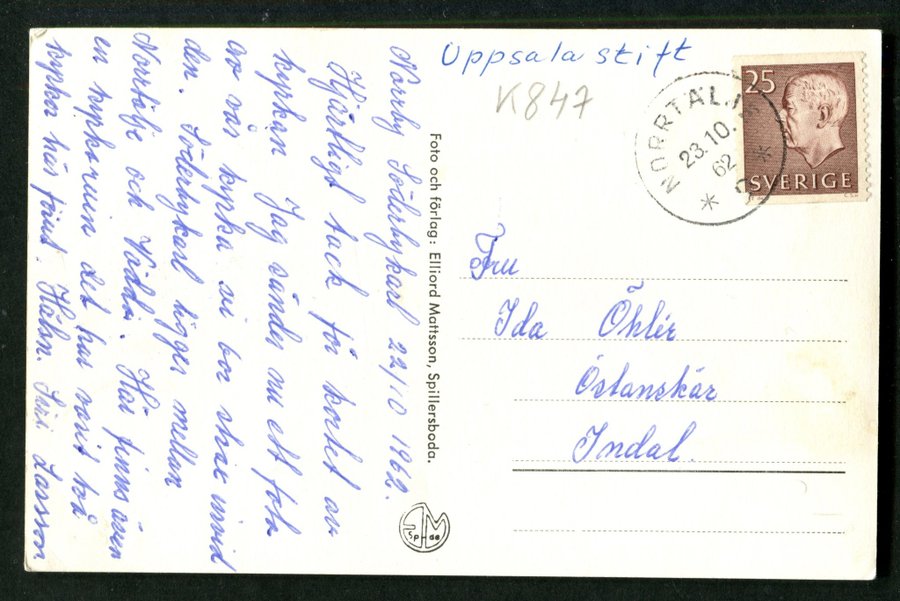 Uppsala stift
K847
25
SVERIGE
NORRTÄLJE
23.10.
62
Norrby Söderbykarl 22/10 1962.
Hjärtligt tack för kortet av
kyrkan Jag sänder nu ett foto
av vår kyrka vi bor strax invid
den. Söderbykarl ligger mellan
Norrtälje och Väddö. Här finns även
en kyrkoruin det har varit två
kyrkor här förut. Hälsn. Siri Larsson
Foto och förlag: Elliord Mattsson, Spillersboda.
Sp-da
Fru
Ida Öhlér
Östanskär
Indal